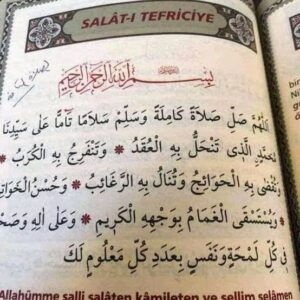 SALÂT-I TEFRİCİYE
بِسْمِ اللهِ الرَّحْمٰنِ الرَّحِيمِ
اَللّٰهُمَّ صَلِّ صَلَاةً كَامِلَةً وَسَلِّمْ سَلَامًا تَامًّا عَلٰى سَيِّدِنَا
مُحَمَّدٍ الَّذِى تَنْحَلُّ بِهِ الْعُقَدُ * وَتَنْفَرِجُ بِهِ الْكُرَبُ *
وَتُقْضٰى بِهِ الْحَوَائِجُ وَتُنَالُ بِهِ الرَّغَائِبُ * وَحُسْنُ الْخَوَاتِ
* وَيُسْتَسْقَى الْغَمَامُ بِوَجْهِهِ الْكَرِيمِ * وَعَلٰى اٰلِهِ وَصَحْ
فِى كُلِّ لَمْحَةٍ وَنَفَسٍ بِعَدَدِ كُلِّ مَعْلُومٍ لَكَ
Allahümme salli salâten kâmileten ve sellim selâmen